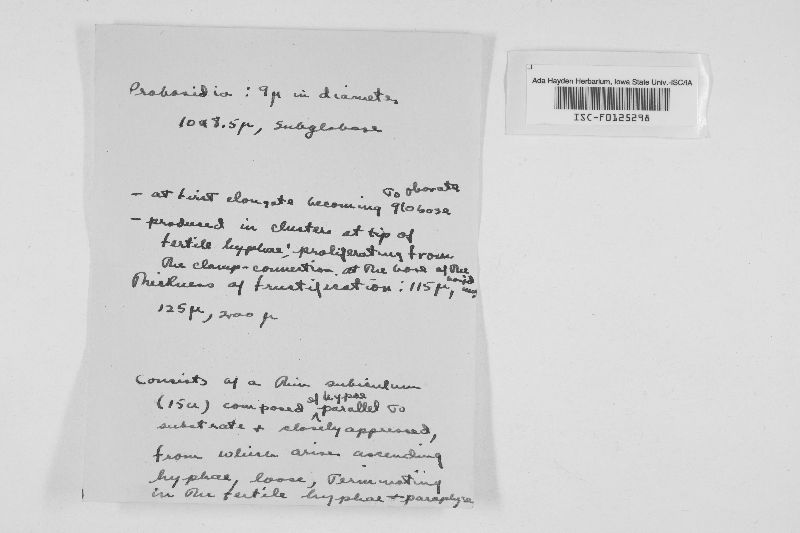 Probasidia : 9µ in diameter
10x8.5µ, subglobose
- at first elongate becoming globose to obovate
- produced in clusters at tip of
fertile hyphae, proliferating from
the clamp-connection at the base of the
Thickness of fructification : 115µ,
125µ, 200 µ
Consists of a thin subiculum
(15µ) composed of hyphae parallel to
substrate + closely appressed,
from which arise ascending
hyphae, loose, terminating
in the fertile hyphae + paraphyses
Ada Hayden Herbarium, Iowa State Univ.-ISC/IA
ISC-F0125298